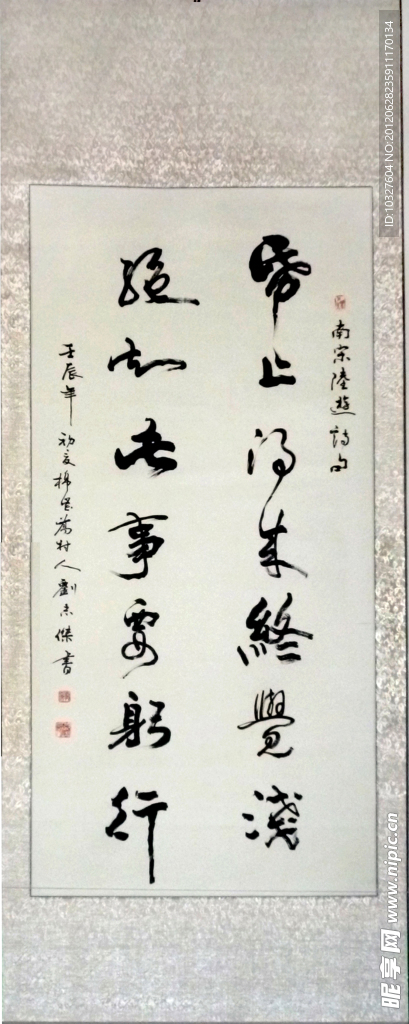 南宋陸遊詩句
帋上得来終覺淺
絕知此事要躬行
壬辰年初夏村人劉志傑書
ID:10327604 NO:20120628235911170134
昵享网 www.nipic.cn